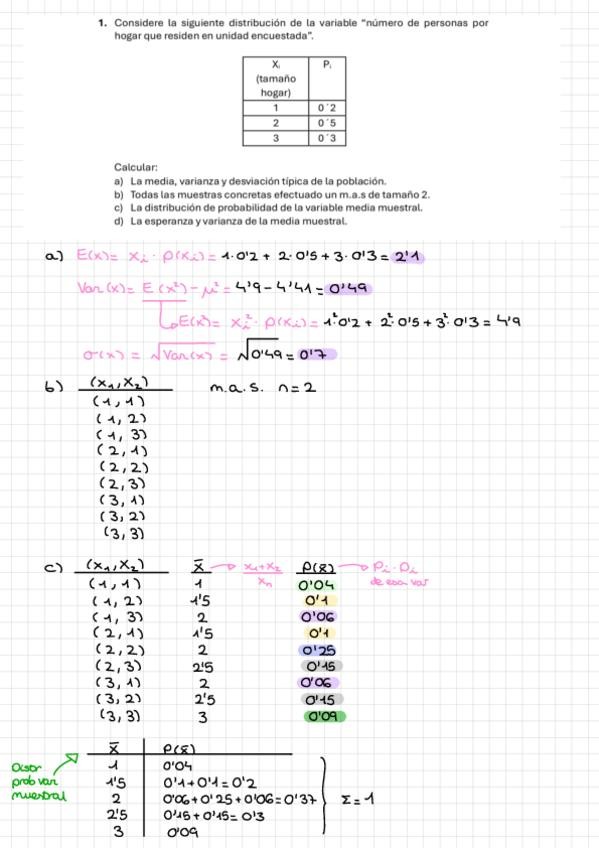 1. Considere la siguiente distribución de la variable "número de personas por
hogar que residen en unidad encuestada".
Xᵢ (tamaño hogar) Pᵢ
1 0´2
2 0´5
3 0´3
Calcular:
a) La media, varianza y desviación típica de la población.
b) Todas las muestras concretas efectuado un m.a.s de tamaño 2.
c) La distribución de probabilidad de la variable media muestral.
d) La esperanza y varianza de la media muestral.
a) E(x) = xᵢ · P(xᵢ) = 1·0'2 + 2·0'5 + 3·0'3 = 2'1
Var(x) = E(x²) - μ² = 4'9 - 4'41 = 0'49
↳ E(x²) = xᵢ² · P(xᵢ) = 1²·0'2 + 2²·0'5 + 3²·0'3 = 4'9
σ(x) = √Var(x) = √0'49 = 0'7
b) (x₁,x₂) m.a.s. n=2
(1,1)
(1,2)
(1,3)
(2,1)
(2,2)
(2,3)
(3,1)
(3,2)
(3,3)
c) (x₁,x₂) x̄ → x₁+x₂/xₙ P(x̄) → Pᵢ·Pᵢ de esa var
(1,1) 1 0'04
(1,2) 1'5 0'1
(1,3) 2 0'06
(2,1) 1'5 0'1
(2,2) 2 0'25
(2,3) 2'5 0'15
(3,1) 2 0'06
(3,2) 2'5 0'15
(3,3) 3 0'09
Distr prob var muestral
x̄ P(x̄)
1 0'04
1'5 0'1+0'1=0'2
2 0'06+0'25+0'06=0'37
2'5 0'15+0'15=0'3
3 0'09
Σ=1